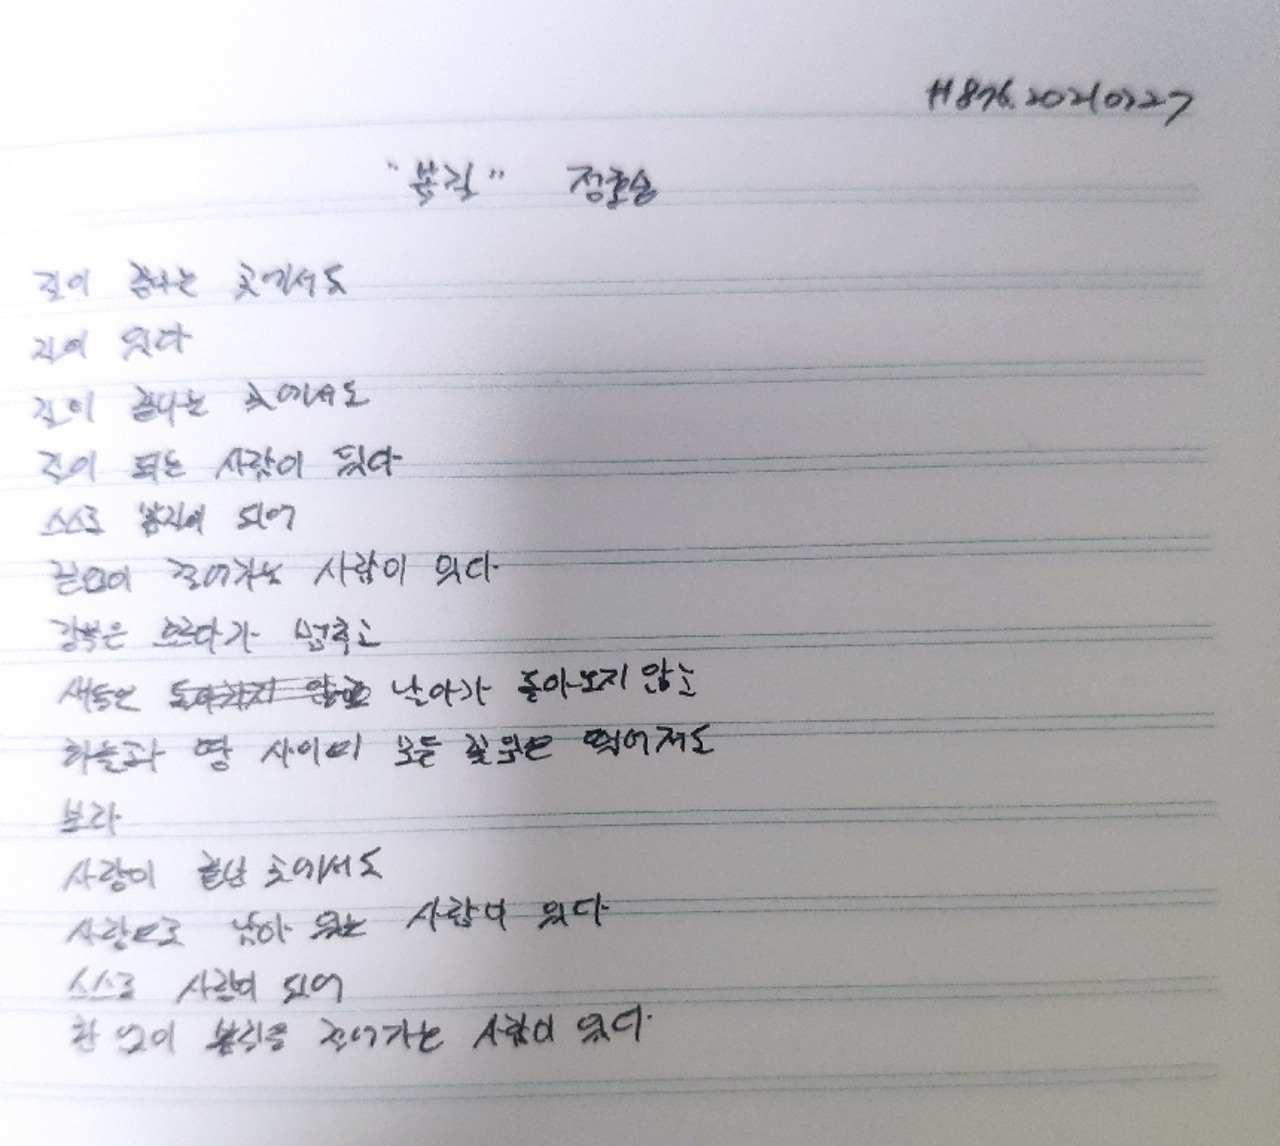 #876.20210227
"봄길" 정호승
길이 끝나는 곳에서도
길이 있다
길이 끝나는 곳에서도
길이 되는 사람이 있다
스스로 봄길이 되어
끝없이 걸어가는 사람이 있다
강물은 흐르다가 멈추고
새들은 돌아가지 않고 날아가 돌아오지 않고
하늘과 땅 사이의 모든 꽃잎은 떨어져도
보라
사랑이 끝난 곳에서도
사랑으로 남아 있는 사람이 있다
스스로 사랑이 되어
한 없이 봄길을 걸어가는 사람이 있다.